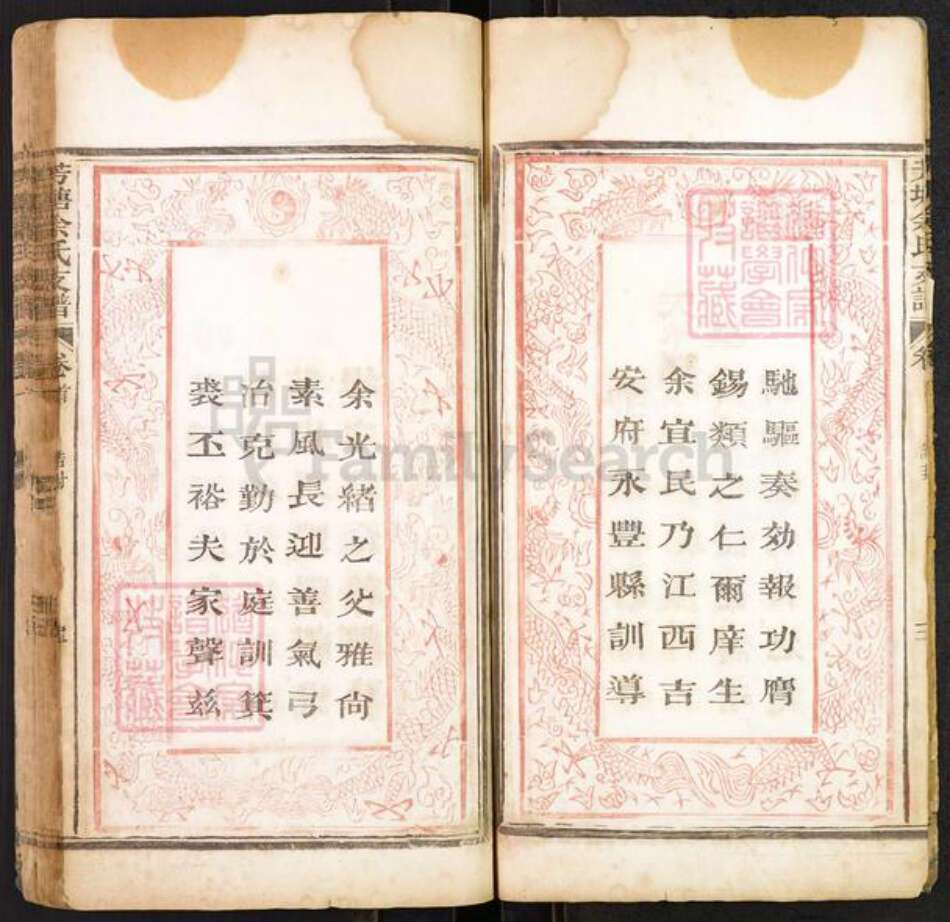 馳驅奏効報功膺
錫類之仁爾庠生
余宜民乃江西吉
安府永豐縣訓導
余光緒之父雅尙
素風長迎善氣弓
冶克勤於庭訓箕
裘丕裕夫家聲兹
芳塘余氏支譜
卷首
誥封
FamilySearch